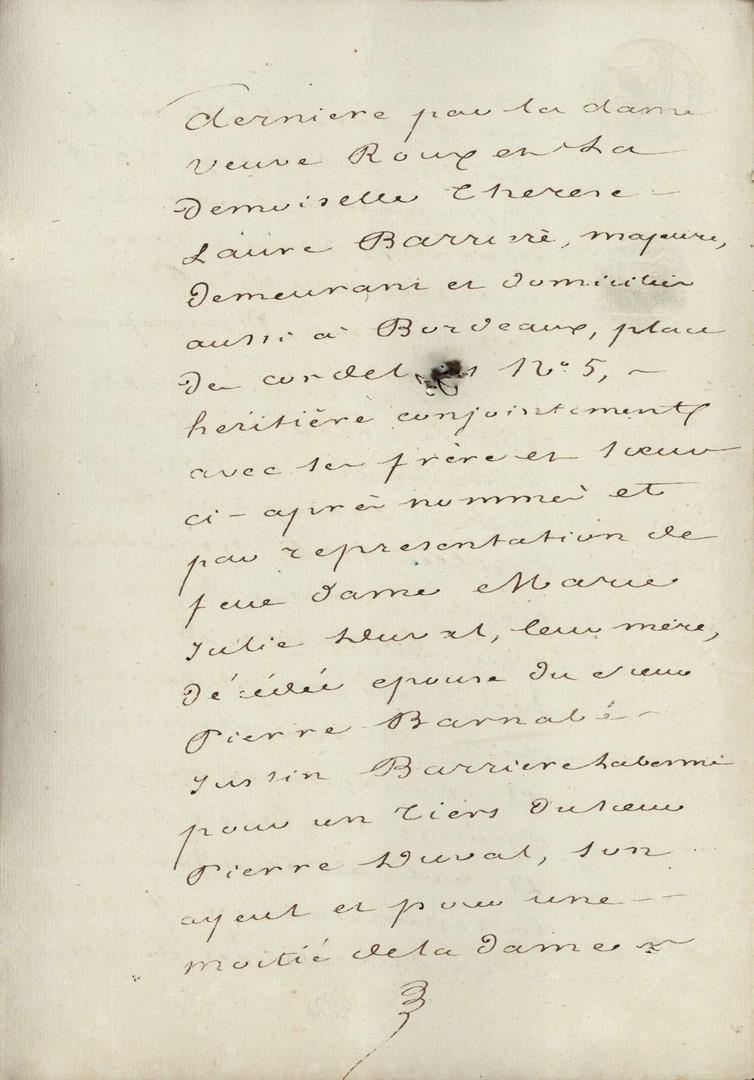 derniere par la dame
veuve Roux et La
Demoiselle Therese –
Laure Barrière, majeure,
Demeurant et domiciliée
aussi à Bordeaux, place
De cordel s N° 5, –
heritière conjointement
avec ses frère et sœur
ci-après nommés et
par representation de
feue Dame Marie
Julie Duval, leur mère,
Décédée epouse du sieur
Pierre Barnabé –
Justin Barriere
pour un tiers Du sieur
Pierre Duval, son
ayeul et pour une –
moitié de la Dame